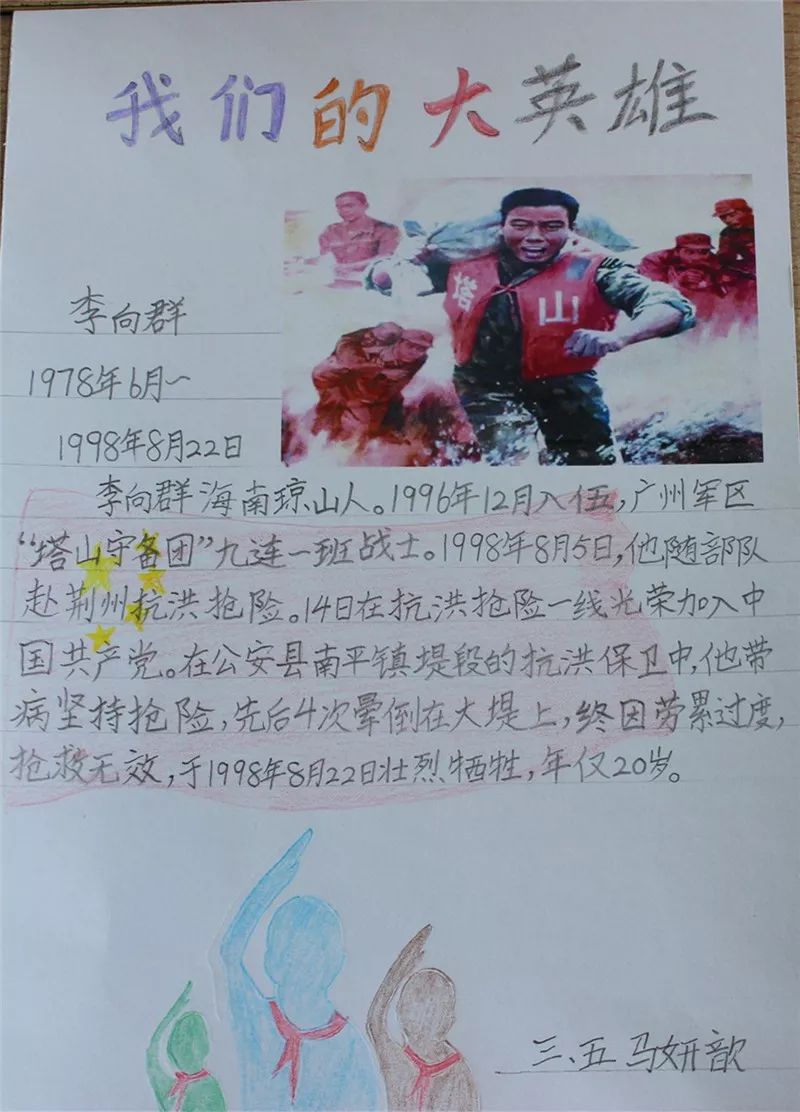 我们的大英雄
塔山
李向群
1978年6月一
1998年8月22日
李向群海南琼山人。1996年12月入伍,广州军区
“塔山守备团”九连一班战士。1998年8月5日,他随部队
赴荆州抗洪抢险。14日在抗洪抢险一线光荣加入中
国共产党。在公安县南平镇堤段的抗洪保卫中,他带
病坚持抢险,先后4次晕倒在大堤上,终因劳累过度,
抢救无效,于1998年8月22日壮烈牺牲,年仅20岁。
三、五 马妍歆